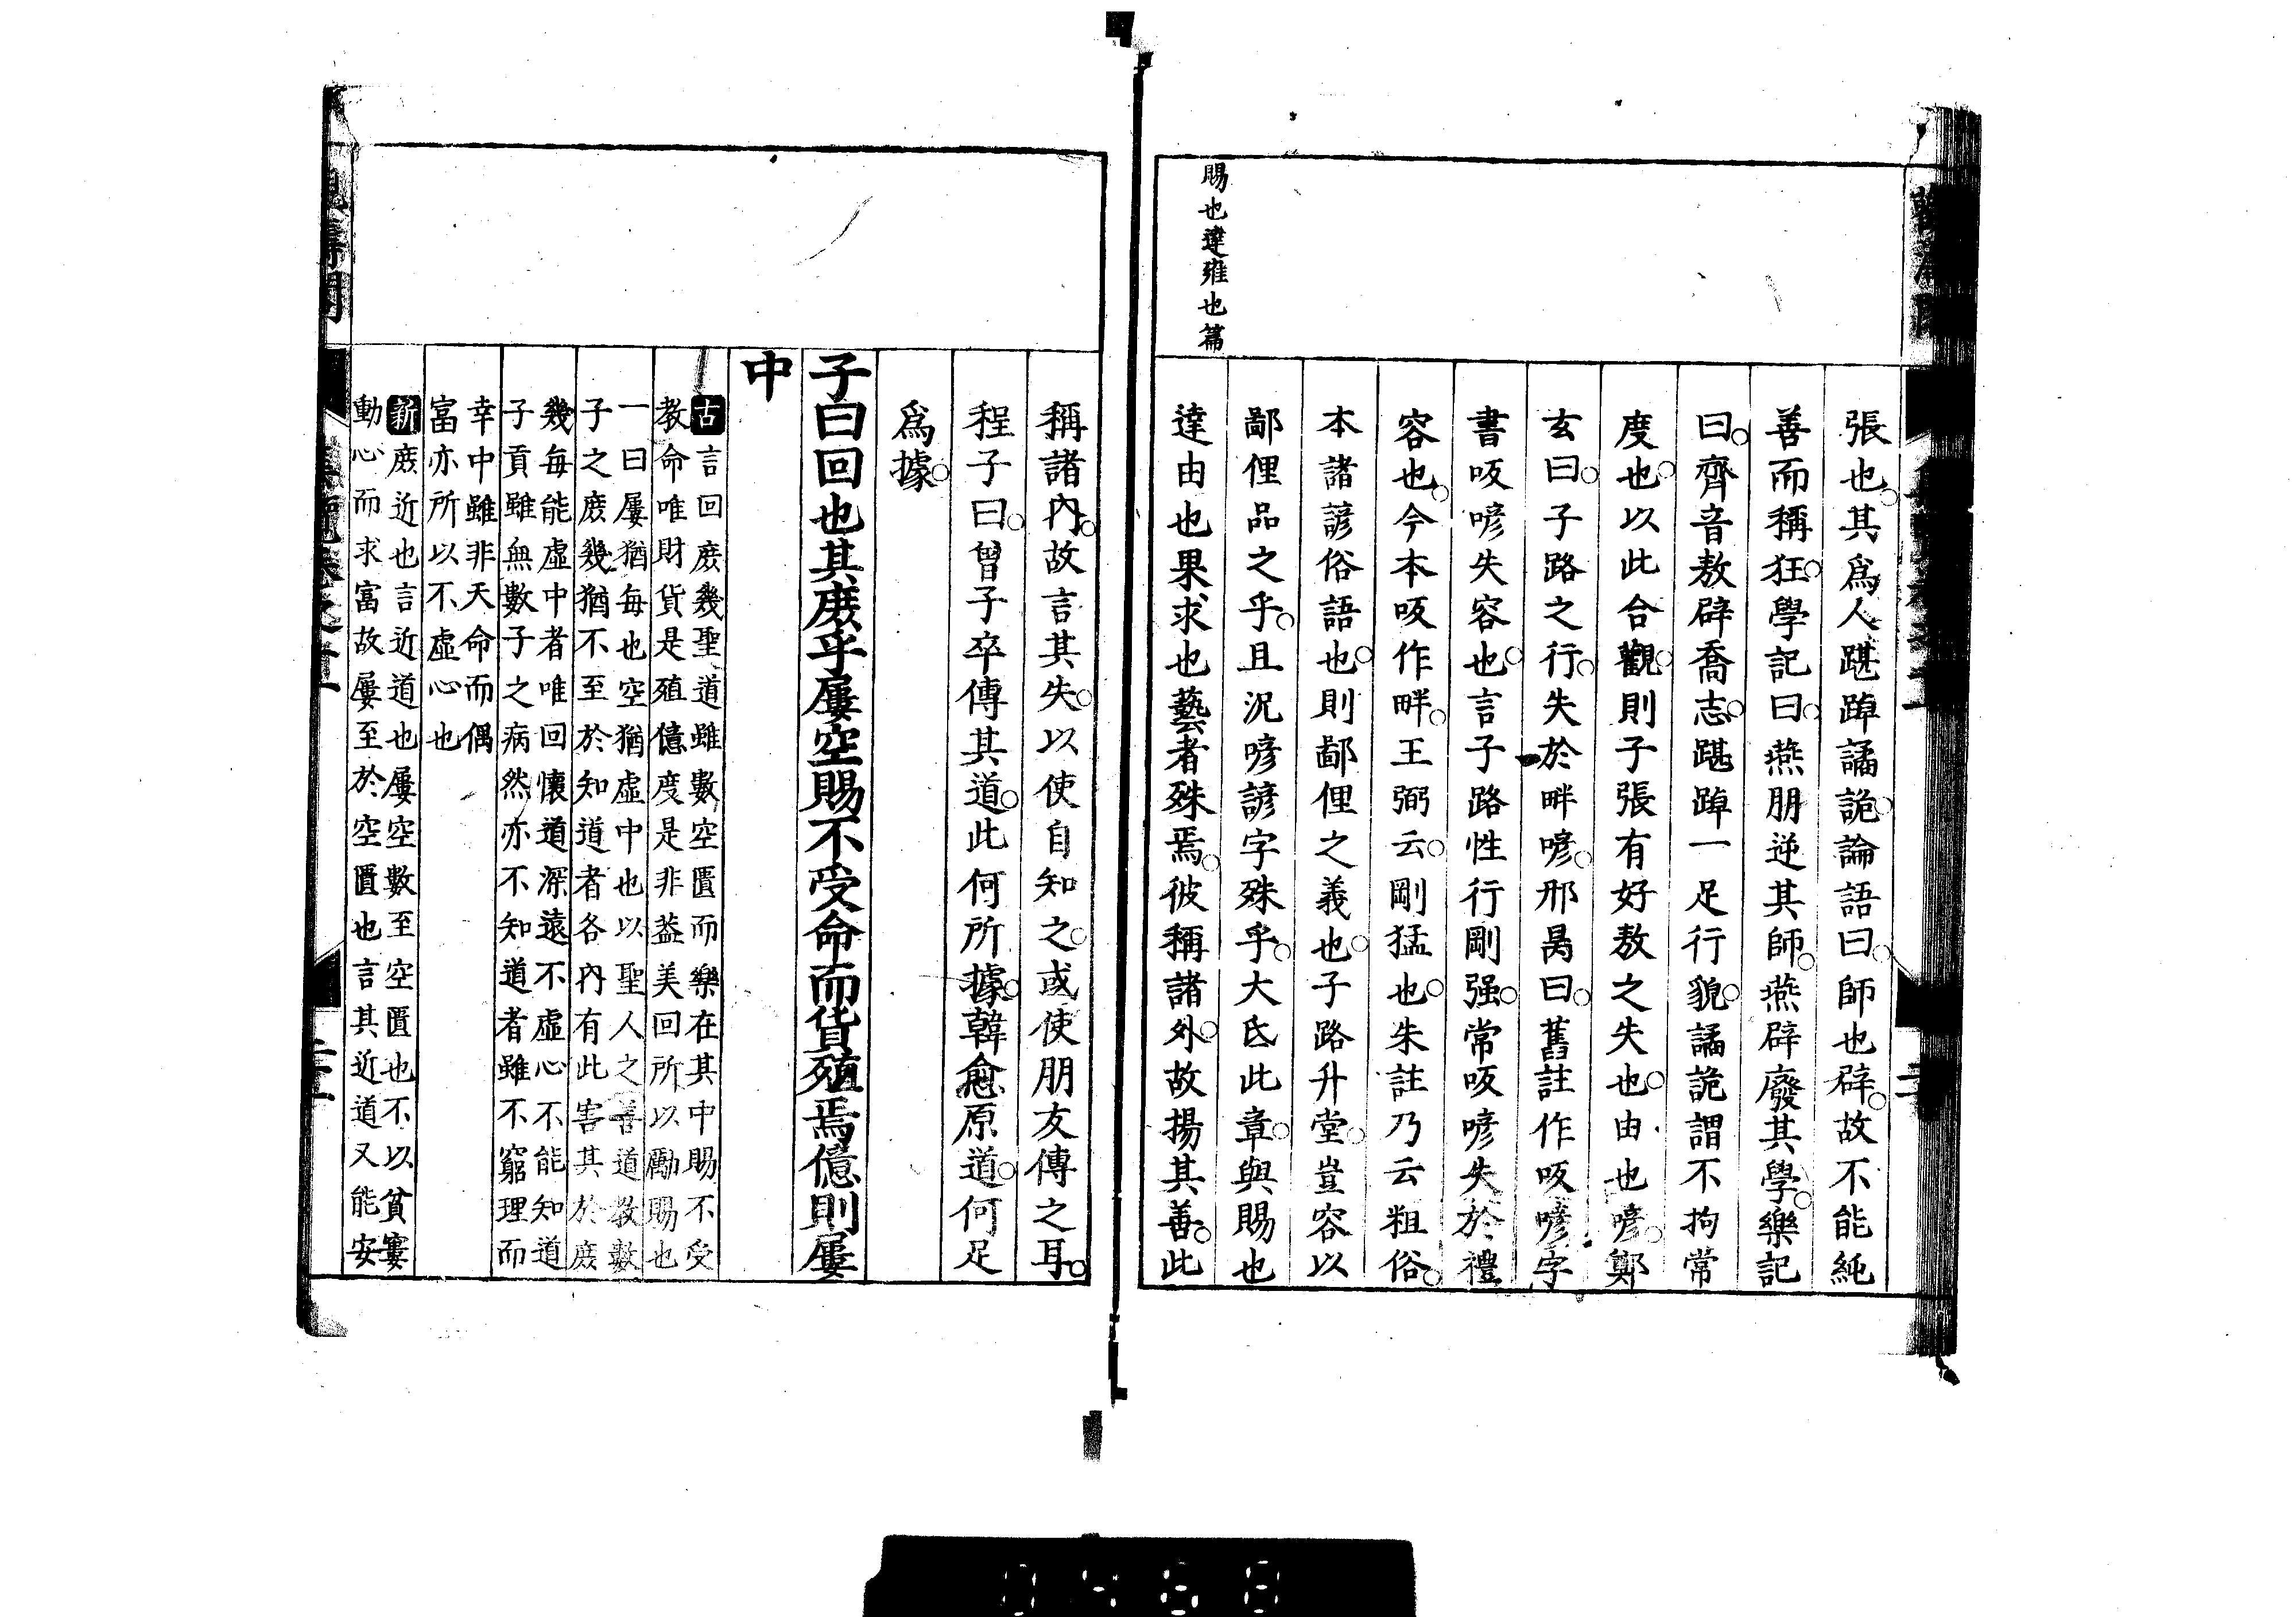 賜也達雍也篇
張也其爲人踸踔譎詭論語曰師也辟故不能純
善而稱狂學記曰燕朋逆其師燕辟廢其學樂記
曰齊音敖辟喬志踸踔一足行貌譎詭謂不拘常
度也以此合觀則子張有好敖之失也由也喭鄭
玄曰子路之行失於畔喭邢昺曰舊註作㕭喭字
書㕭喭失容也言子路性行剛强常㕭喭失於禮
容也今本㕭作畔王弼云剛猛也朱註乃云粗俗
本諸諺俗語也則鄙俚之義也子路升堂豈容以
鄙俚品之乎且況喭諺字殊乎大氐此章與賜也
達由也果求也藝者殊焉彼稱諸外故揚其善此
稱諸內故言其失以使自知之或使朋友傳之耳
程子曰曾子卒傳其道此何所據韓愈原道何足
爲據
子曰回也其庶乎屢空賜不受命而貨殖焉億則屢
中
古言回庶幾聖道雖數空匱而樂在其中賜不受
教命唯財貨是殖億度是非蓋美回所以勵賜也
一曰屢猶每也空猶虛中也以聖人之善道教數
子之庶幾猶不至於知道者各內有此害其於庶
幾每能虛中者唯回懷道深遠不虛心不能知道
子貢雖無數子之病然亦不知道者雖不窮理而
幸中雖非天命而偶
富亦所以不虛心也
新庶近也言近道也屢空數至空匱也不以貧窶
動心而求富故屢至於空匱也言其近道又能安